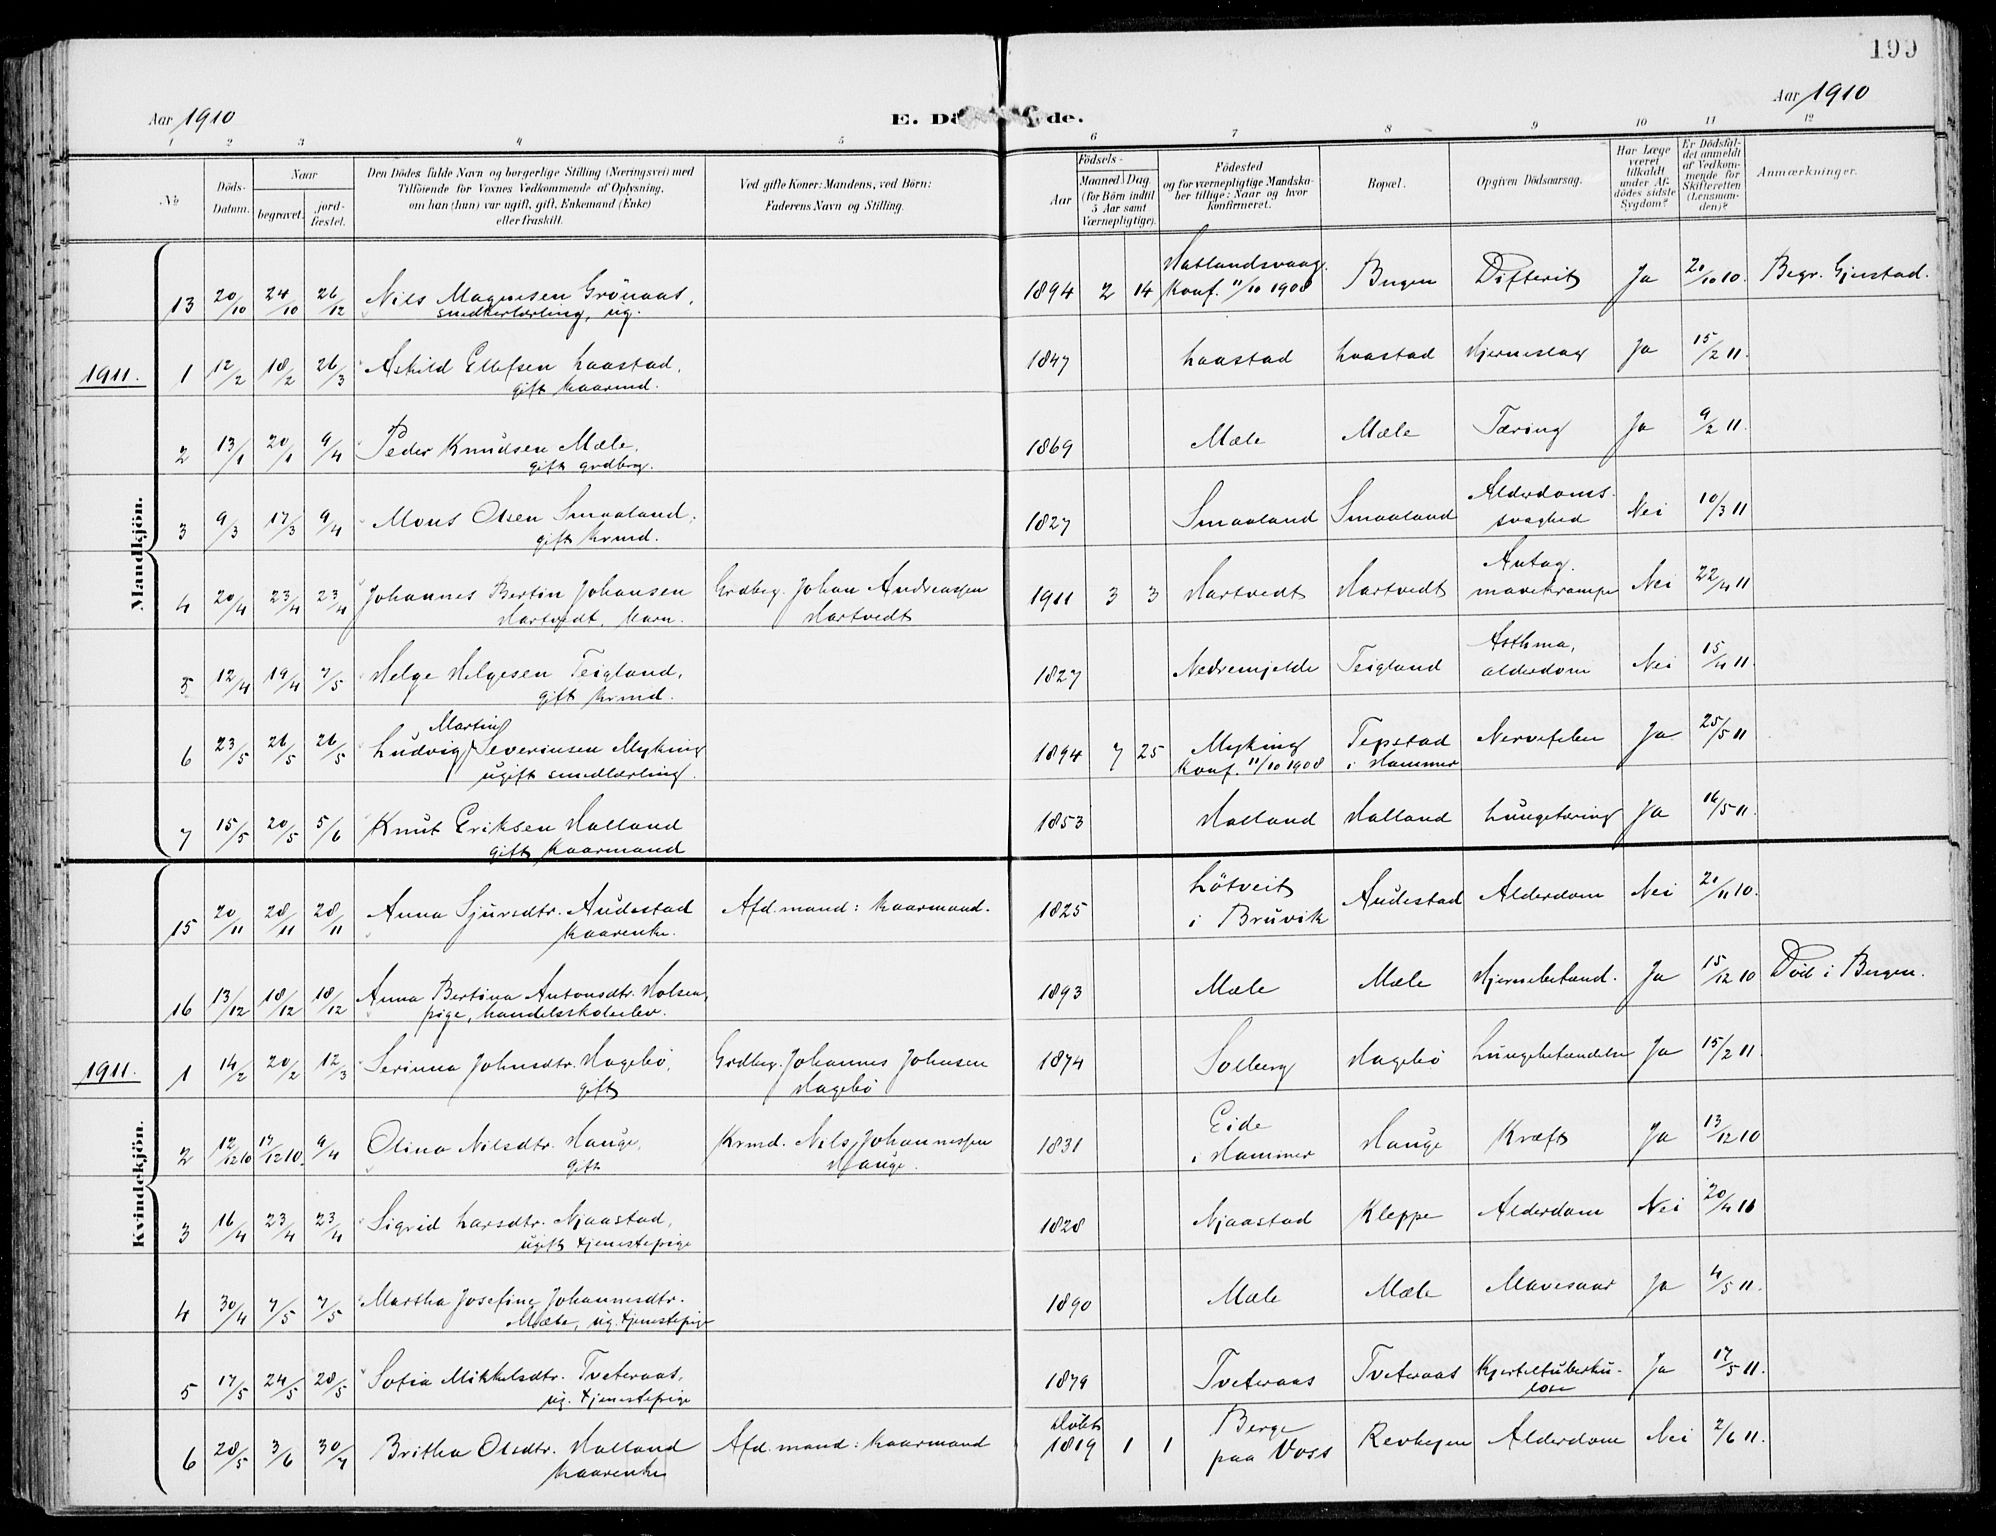 199
Aar 1910
E. Dö de.
Aar 1910
1 2 3 4 5 6 7 8 9 10 11 12
No
Döds-Datum.
Naar
begravet.
jord-fæstet.
Den Dödes fulde Navn og borgerlige Stilling (Næringsvei) med
Tilföiende for Voxnes Vedkommende af Oplysning,
om han (hun) var ugift, gift, Enkemand (Enke)
eller fraskilt.
Ved gifte Koner: Mandens, ved Börn:
Faderens Navn og Stilling.
Aar
Födsels-
Maaned Dag
(for Börn indtil
5 Aar samt
Værnepligtige).
Födested
og for værnepligtige Mandska-
ber tillige: Naar og hvor
konfirmeret.
Bopæl.
Opgiven Dödsaarsag.
Har Læge
været
tilkaldt
under Af-
dödes sidste
Sygdom?
Er Dödsfal-
det anmeldt
af Vedkom-
mende for
Skifteretten
(Lensman-
den)?
Anmærkninger.
Mandkjön.
13 20/10 24/10 26/12 Nils Magnesen Grönaas, 1894 2 14 Hatlandsvaag. Bergen Difterit Ja 20/10 10. Begr. Gjerstad.
snedkerlærling, ug. Konf. 11/10 1908
1911. 1 12/2 18/2 26/3 Askild Ellefsen Laastad, 1847 Laastad Laastad Hjerneslag Ja 15/2 11.
gift kaarmd.
2 13/1 20/1 9/4 Peder Knudsen Mæle, 1869 Mæle Mæle Tæring Ja 9/2 11.
gift grdbrg.
3 9/3 17/3 9/4 Mons Olsen Smaaland, 1827 Smaaland Smaaland Alderdoms- Nei 10/3 11
gift krmd. svaghed
4 20/4 23/4 23/4 Johannes Bertin Johansen Grdbrg. Johan Andreassen 1911 3 3 Hartvedt Hartvedt Antag. Nei 22/4 11
Hartvedt, barn. Hartvedt mavekrampe
5 12/4 19/4 7/5 Helge Helgesen Teigland, 1827 Nedremjelde Teigland Asthma, Nei 15/4 11.
gift krmd. alderdom
6 23/5 26/5 26/5 Ludvig Martin Severinsen Myking 1894 7 25 Myking Tepstad Nervefeber Ja 25/5 11
ugift smedlærling. Konf. 11/10 1908 i Hammer
7 15/5 20/5 5/6 Knut Eriksen Halland 1853 Halland Halland Lungetæring Ja 16/5 11.
gift kaarmand
Kvindekjön.
15 20/11 28/11 28/11 Anna Sjursdtr. Audestad Afd. mand: kaarmand. 1825 Lötveit Audestad Alderdom Nei 20/11 10.
kaarenke. i Bruvik
16 13/12 18/12 18/12 Anna Bertina Antonsdtr. Holsen, 1893 Mæle Mæle Hjernebetænd. Ja 15/12 10 Död i Bergen.
pige, handelsskoleelev.
1911. 1 14/2 20/2 12/3 Serinna Johnsdtr. Hagebö, Grdbrg. Johannes Johnsen 1874 Solberg Hagebö Lungebetændelse Ja 15/2 11.
gift Hagebö
2 12/12 10 17/12 10. 9/4 Olina Nilsdtr. Hauge, Krmd. Nils Johannessen 1831 Eide Hauge Kræft Ja 13/12 10
gift Hauge. i Hammer
3 16/4 23/4 23/4 Sigrid Larsdtr. Njaastad, 1828 Njaastad Kleppe Alderdom Nei 20/4 11
ugift tjenestepige
4 30/4 7/5 7/5 Martha Josefine Johannesdtr. 1890 Mæle Mæle Mavesaar Ja 4/5 11.
Mæle, ug. tjenestepige
5 17/5 24/5 28/5 Sofia Mikkelsdtr. Tveteraas, 1879 Tveteraas Tveteraas Kjerteltuberku- Ja 17/5 11.
ug. tjenestepige lose
6 28/5 3/6 30/7 Britha Olsdtr. Halland Afd. mand: kaarmand Döbt 1819 1 1 Berge Revheyen Alderdom Nei 2/6 11.
kaarenke paa Voss